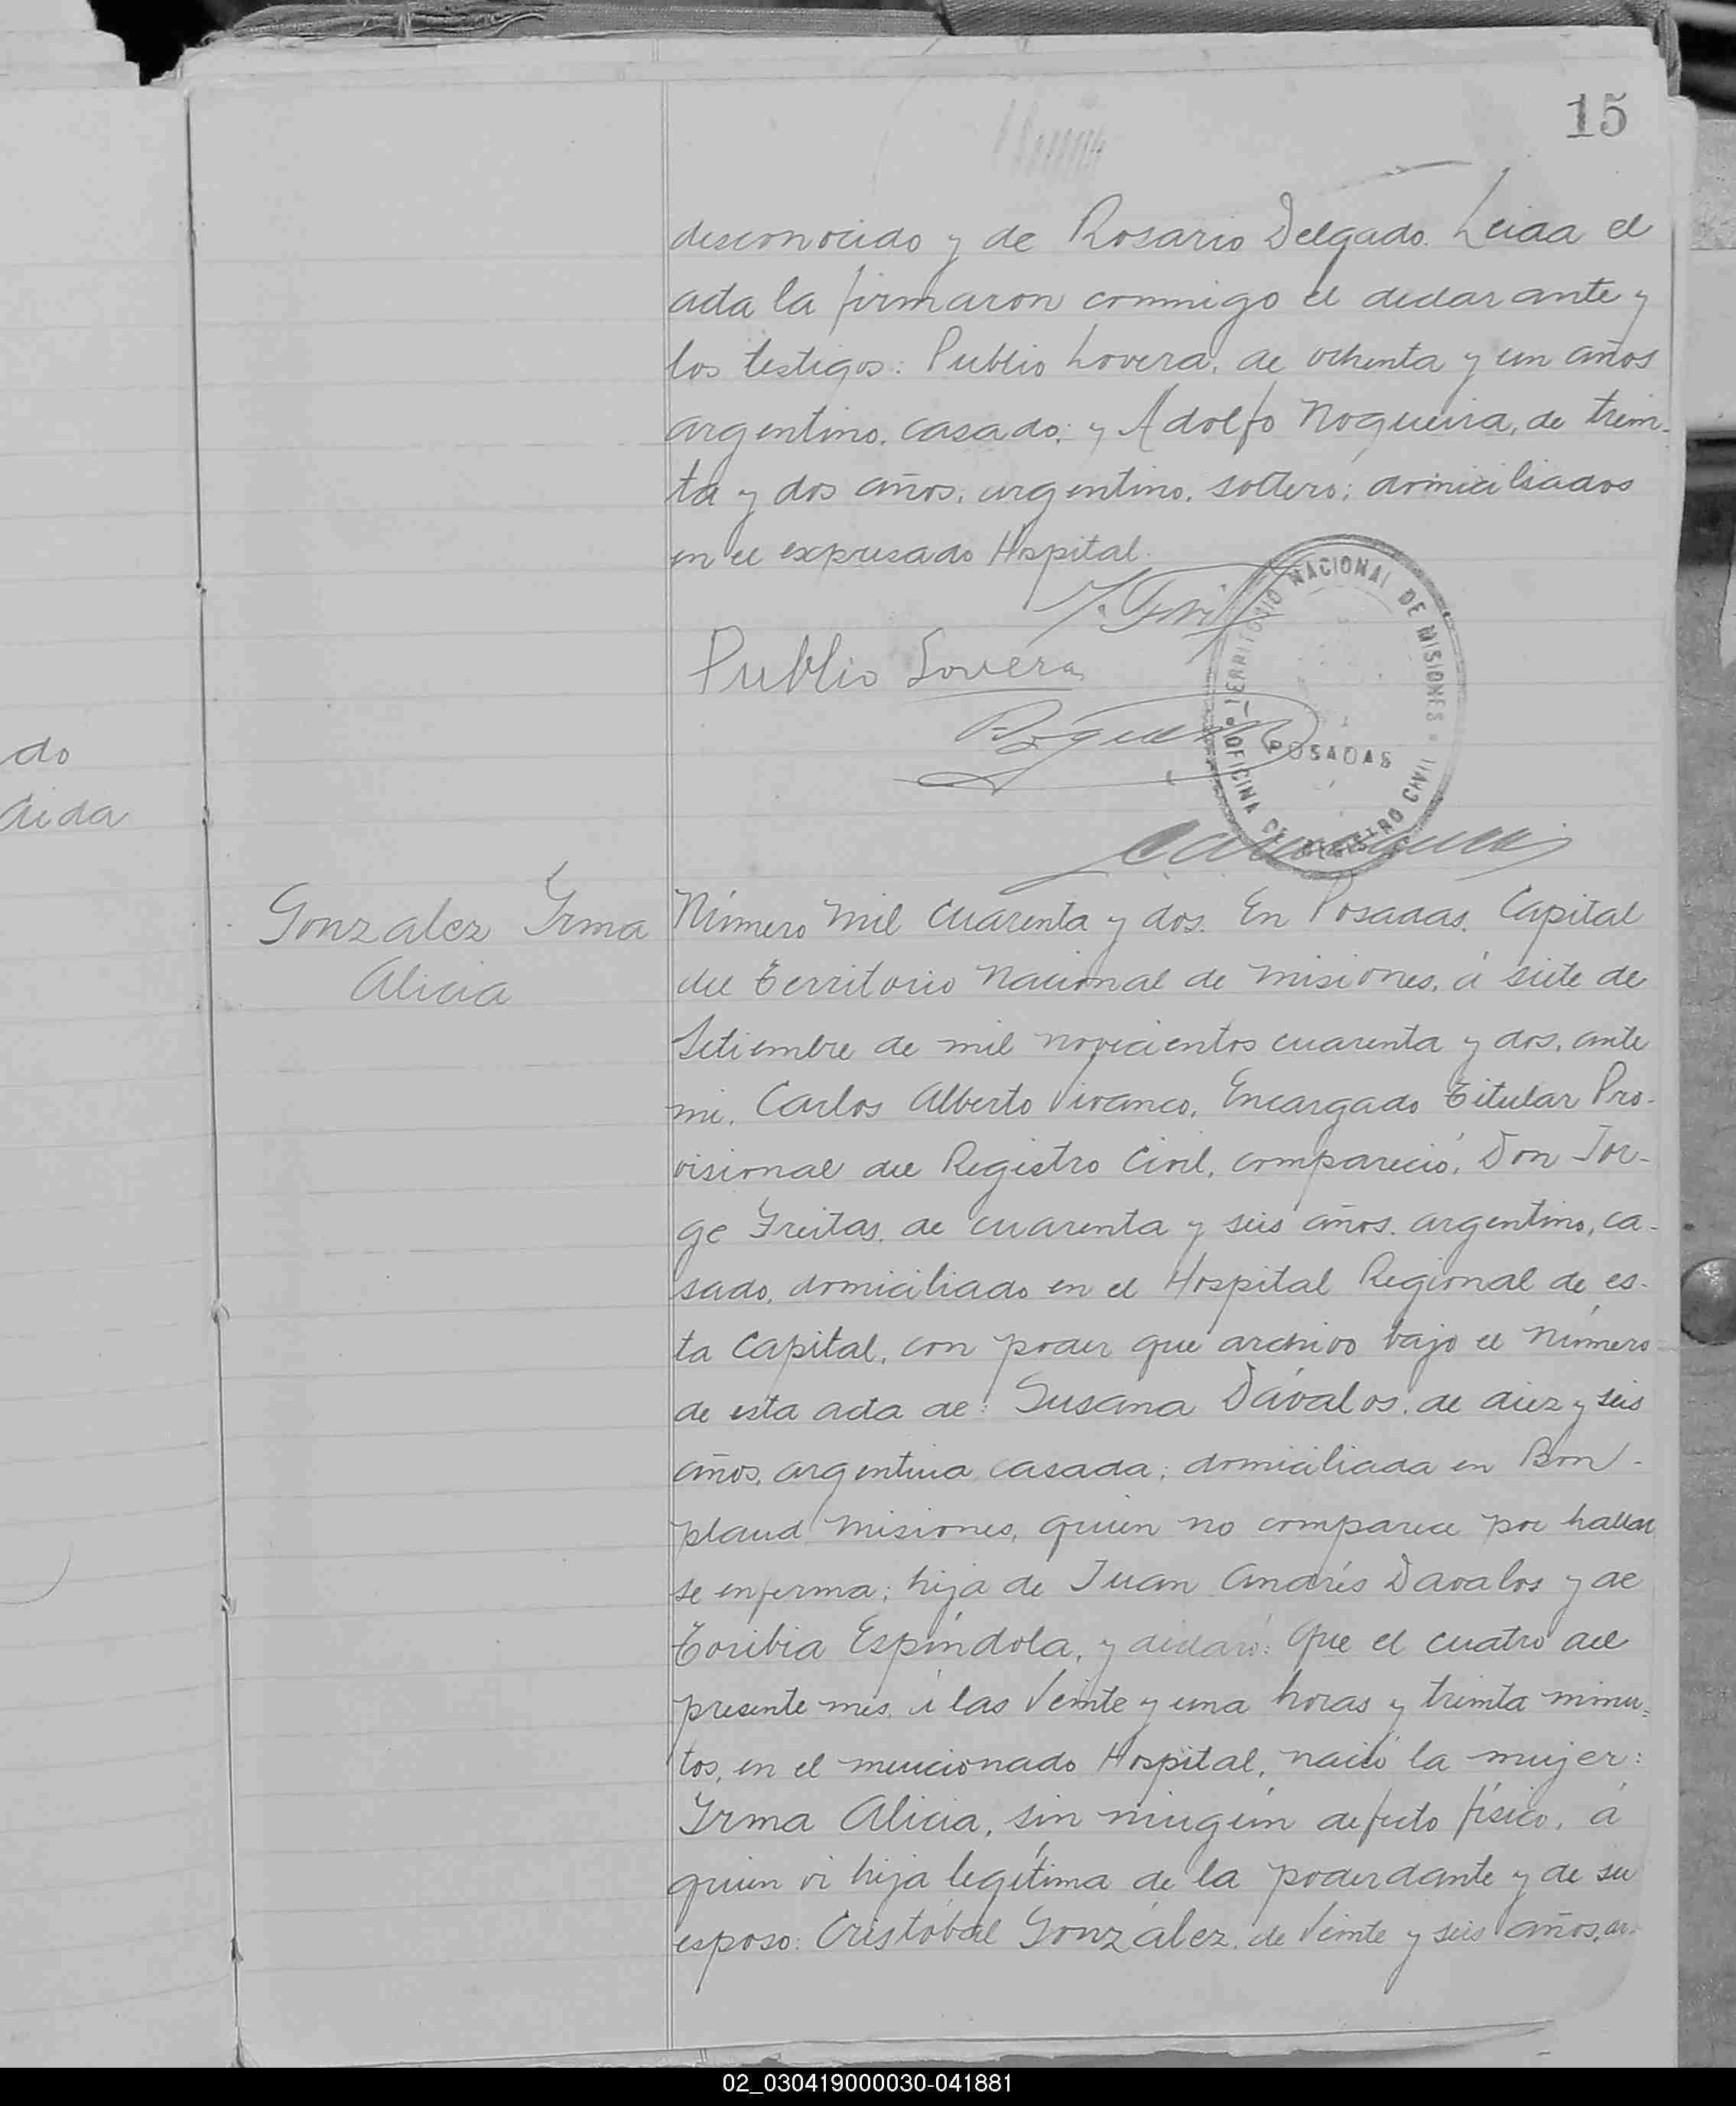 15
desconocido y de Rosario Delgado. Leida el
acta la firmaron conmigo el declarante y
los testigos: Publio Lovera, de ochenta y un años
argentino, casado; y Adolfo Nogueira, de trein-
ta y dos años, argentino, soltero; domiciliados
en el expresado Hospital.
Publio Lovera
TERRITORIO NACIONAL DE MISIONES
POSADAS
OFICINA DE REGISTRO CIVIL
do
aida
Gonzalez Irma
Alicia
Número mil cuarenta y dos. En Posadas, Capital
del Territorio Nacional de Misiones, á siete de
Setiembre de mil novecientos cuarenta y dos, ante
mi, Carlos Alberto Vivanco, Encargado Titular Pro-
visional del Registro Civil, compareció, Don Jor-
ge Freitas, de cuarenta y seis años, argentino, ca-
sado, domiciliado en el Hospital Regional de es-
ta Capital, con poder que archivo bajo el número
de esta acta de: Susana Dávalos, de diez y seis
años, argentina, casada; domiciliada en Bon-
pland, Misiones, quien no comparece por hallar
se enferma; hija de Juan Andrés Davalos y de
Toribia Espíndola, y declaró: Que el cuatro del
presente mes, á las veinte y una horas y treinta minu=
tos, en el mencionado Hospital, nació la mujer:
Irma Alicia, sin ningún defecto físico, á
quien vi hija legítima de la poderdante y de su
esposo: Cristóbal González, de veinte y seis años, ar-
02_030419000030-041881